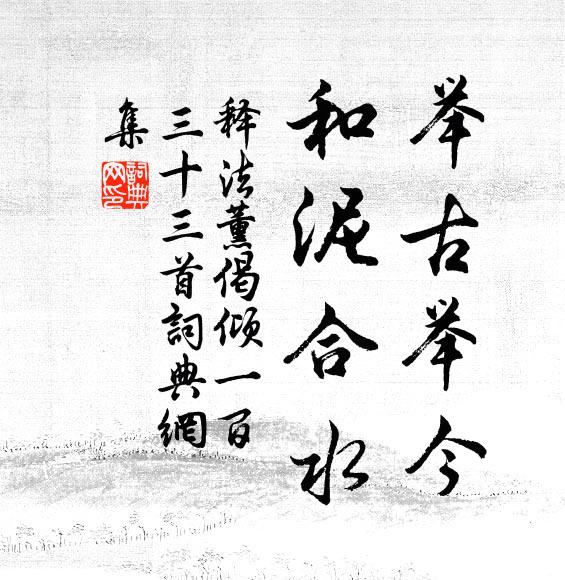 举古举今
和泥合水
释法薰偈倾一百
三十三首词典網
集
詞典网印